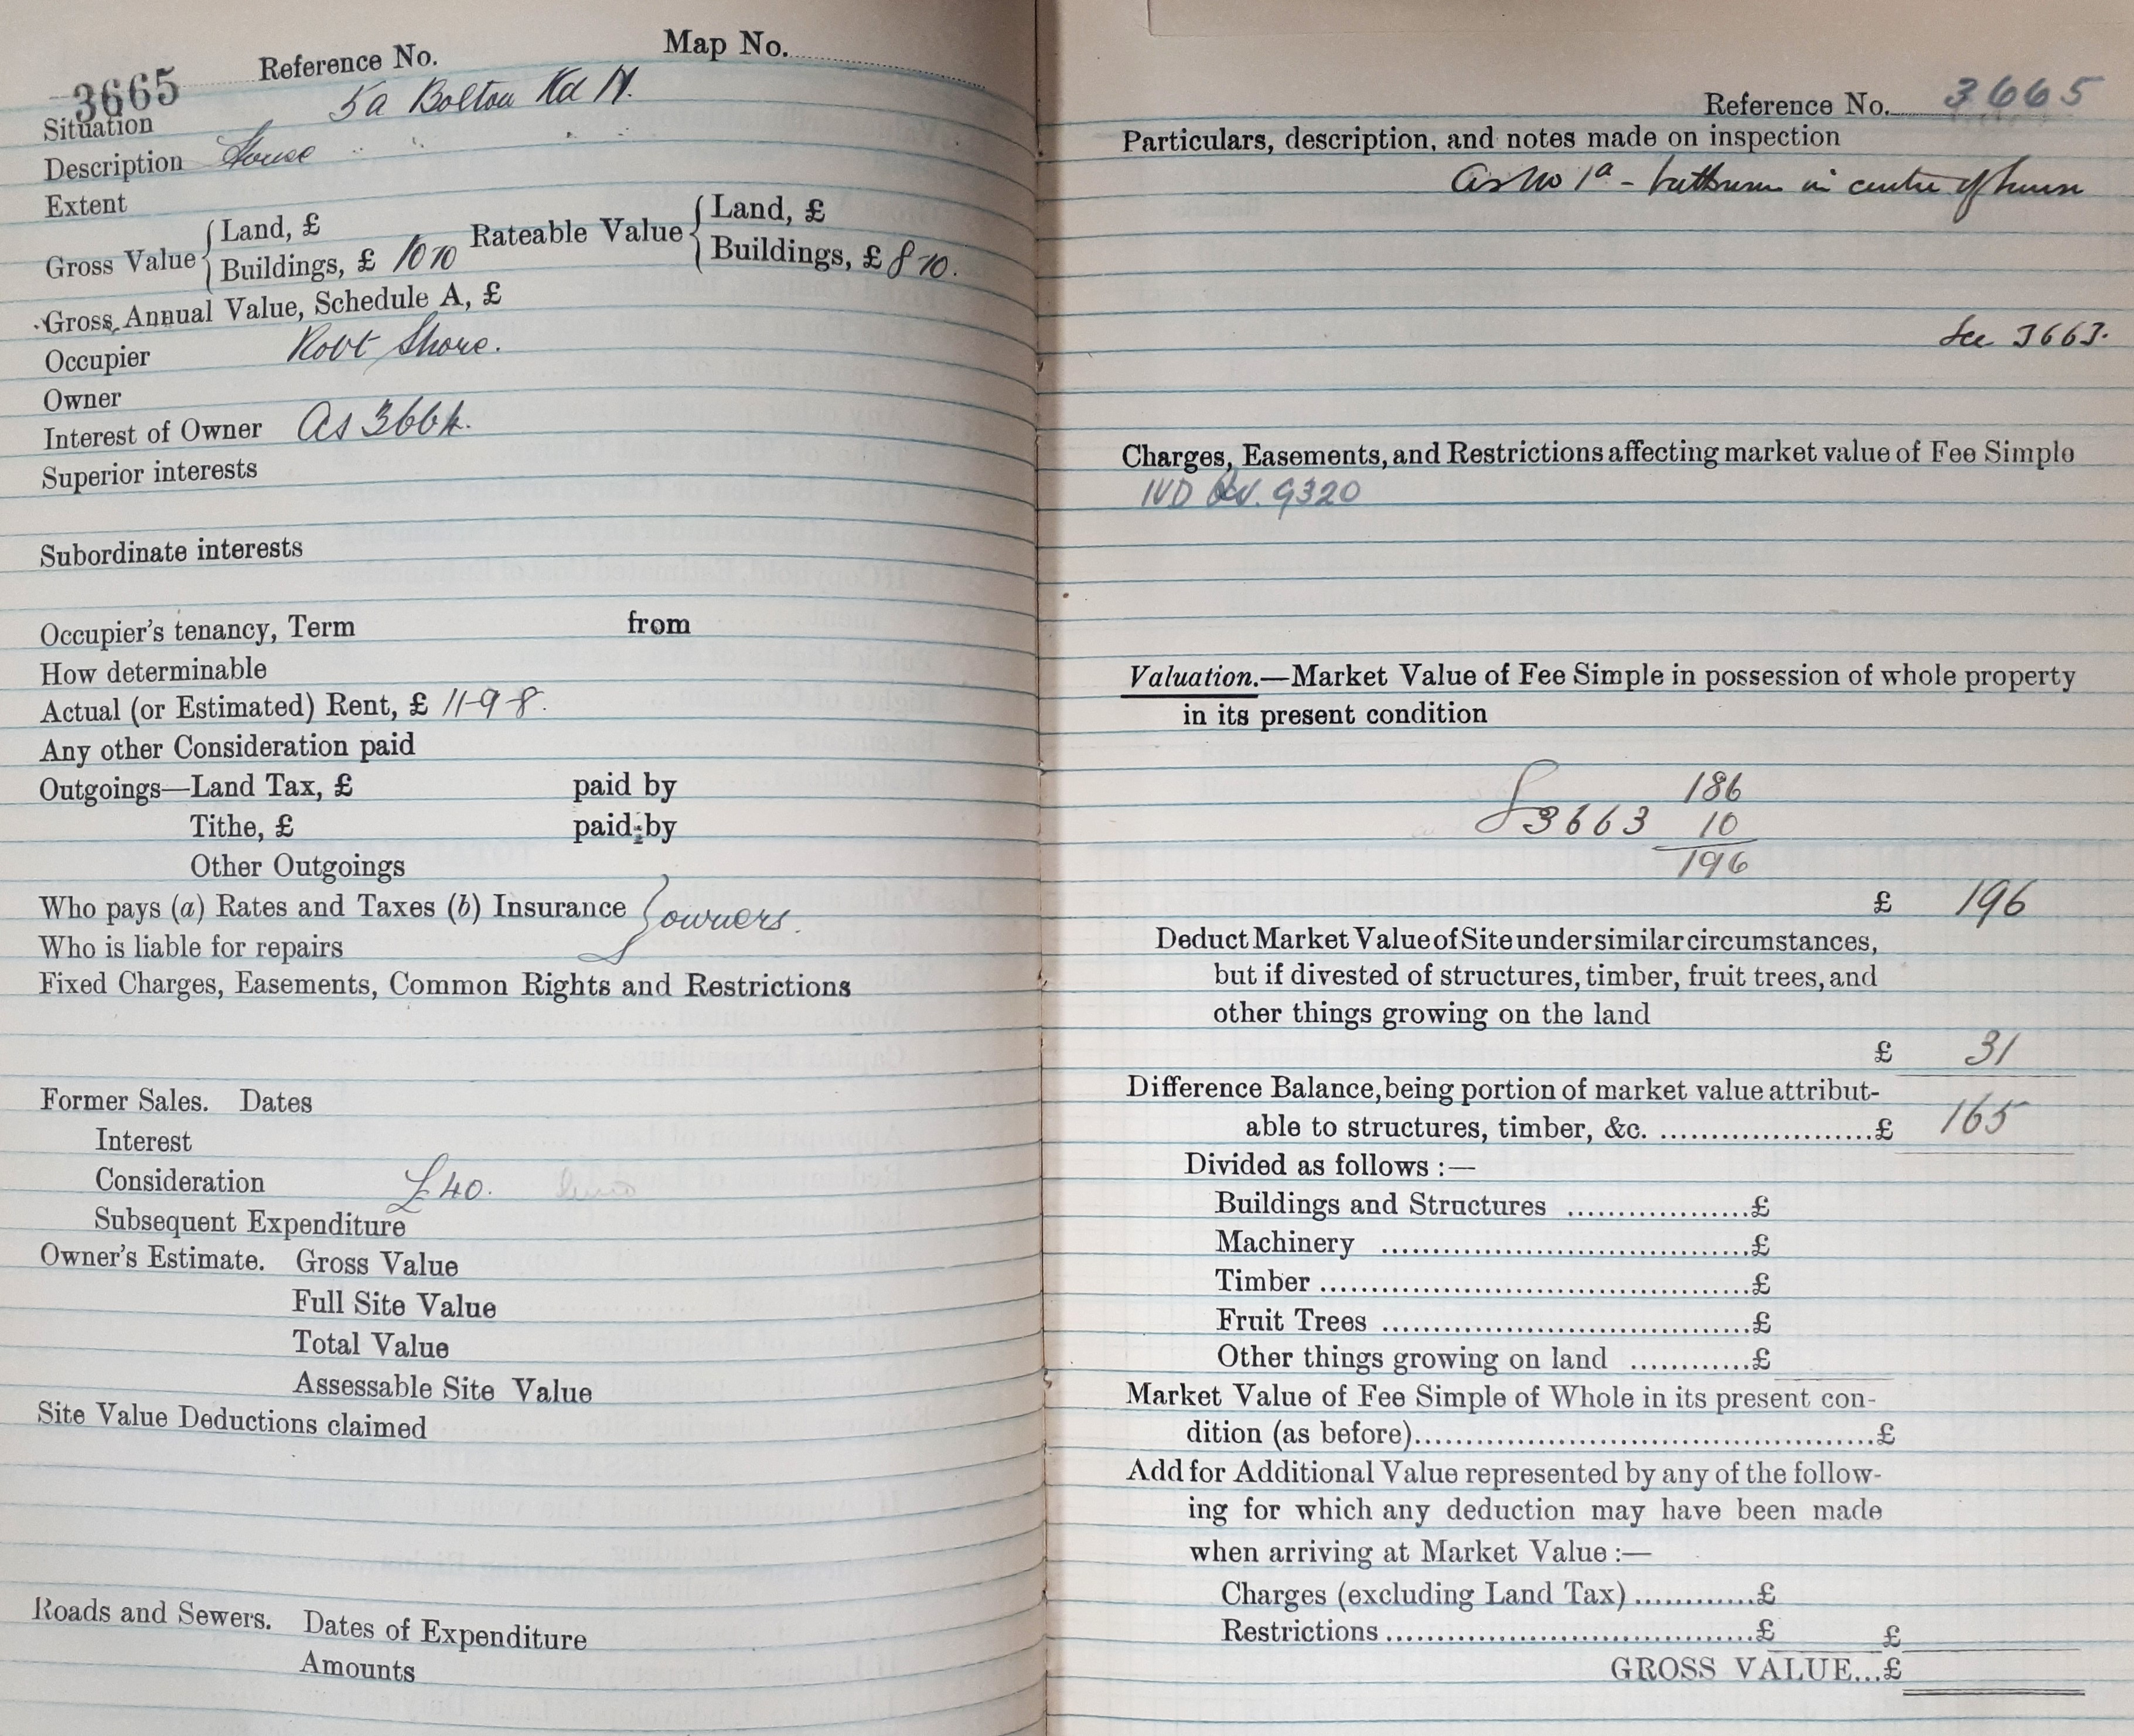 Reference No. Map No.
3665
Situation 5a Bolton Rd N.
Description House
Extent
Gross Value { Land, £
Buildings, £ 10 10 Rateable Value { Land, £
Buildings, £ 8 10.
Gross Annual Value, Schedule A, £
Occupier Robt Shore.
Owner
Interest of Owner As 3664.
Superior interests
Subordinate interests
Occupier's tenancy, Term from
How determinable
Actual (or Estimated) Rent, £ 11-9-8.
Any other Consideration paid
Outgoings—Land Tax, £ paid by
Tithe, £ paid by
Other Outgoings
Who pays (a) Rates and Taxes (b) Insurance } owners.
Who is liable for repairs
Fixed Charges, Easements, Common Rights and Restrictions
Former Sales. Dates
Interest
Consideration £40.
Subsequent Expenditure
Owner's Estimate. Gross Value
Full Site Value
Total Value
Assessable Site Value
Site Value Deductions claimed
Roads and Sewers. Dates of Expenditure
Amounts
Reference No. 3665
Particulars, description, and notes made on inspection
As No 1a - bathroom in centre of house
See 3663.
Charges, Easements, and Restrictions affecting market value of Fee Simple
IVD 9320
Valuation.—Market Value of Fee Simple in possession of whole property
in its present condition
186
3663 10
196
£ 196
Deduct Market Value of Site under similar circumstances,
but if divested of structures, timber, fruit trees, and
other things growing on the land
£ 31
Difference Balance, being portion of market value attribut-
able to structures, timber, &c. ......................£ 165
Divided as follows :—
Buildings and Structures ..................£
Machinery ....................................£
Timber ..........................................£
Fruit Trees ....................................£
Other things growing on land ............£
Market Value of Fee Simple of Whole in its present con-
dition (as before)..............................................£
Add for Additional Value represented by any of the follow-
ing for which any deduction may have been made
when arriving at Market Value :—
Charges (excluding Land Tax)............£
Restrictions....................................£ £
GROSS VALUE...£